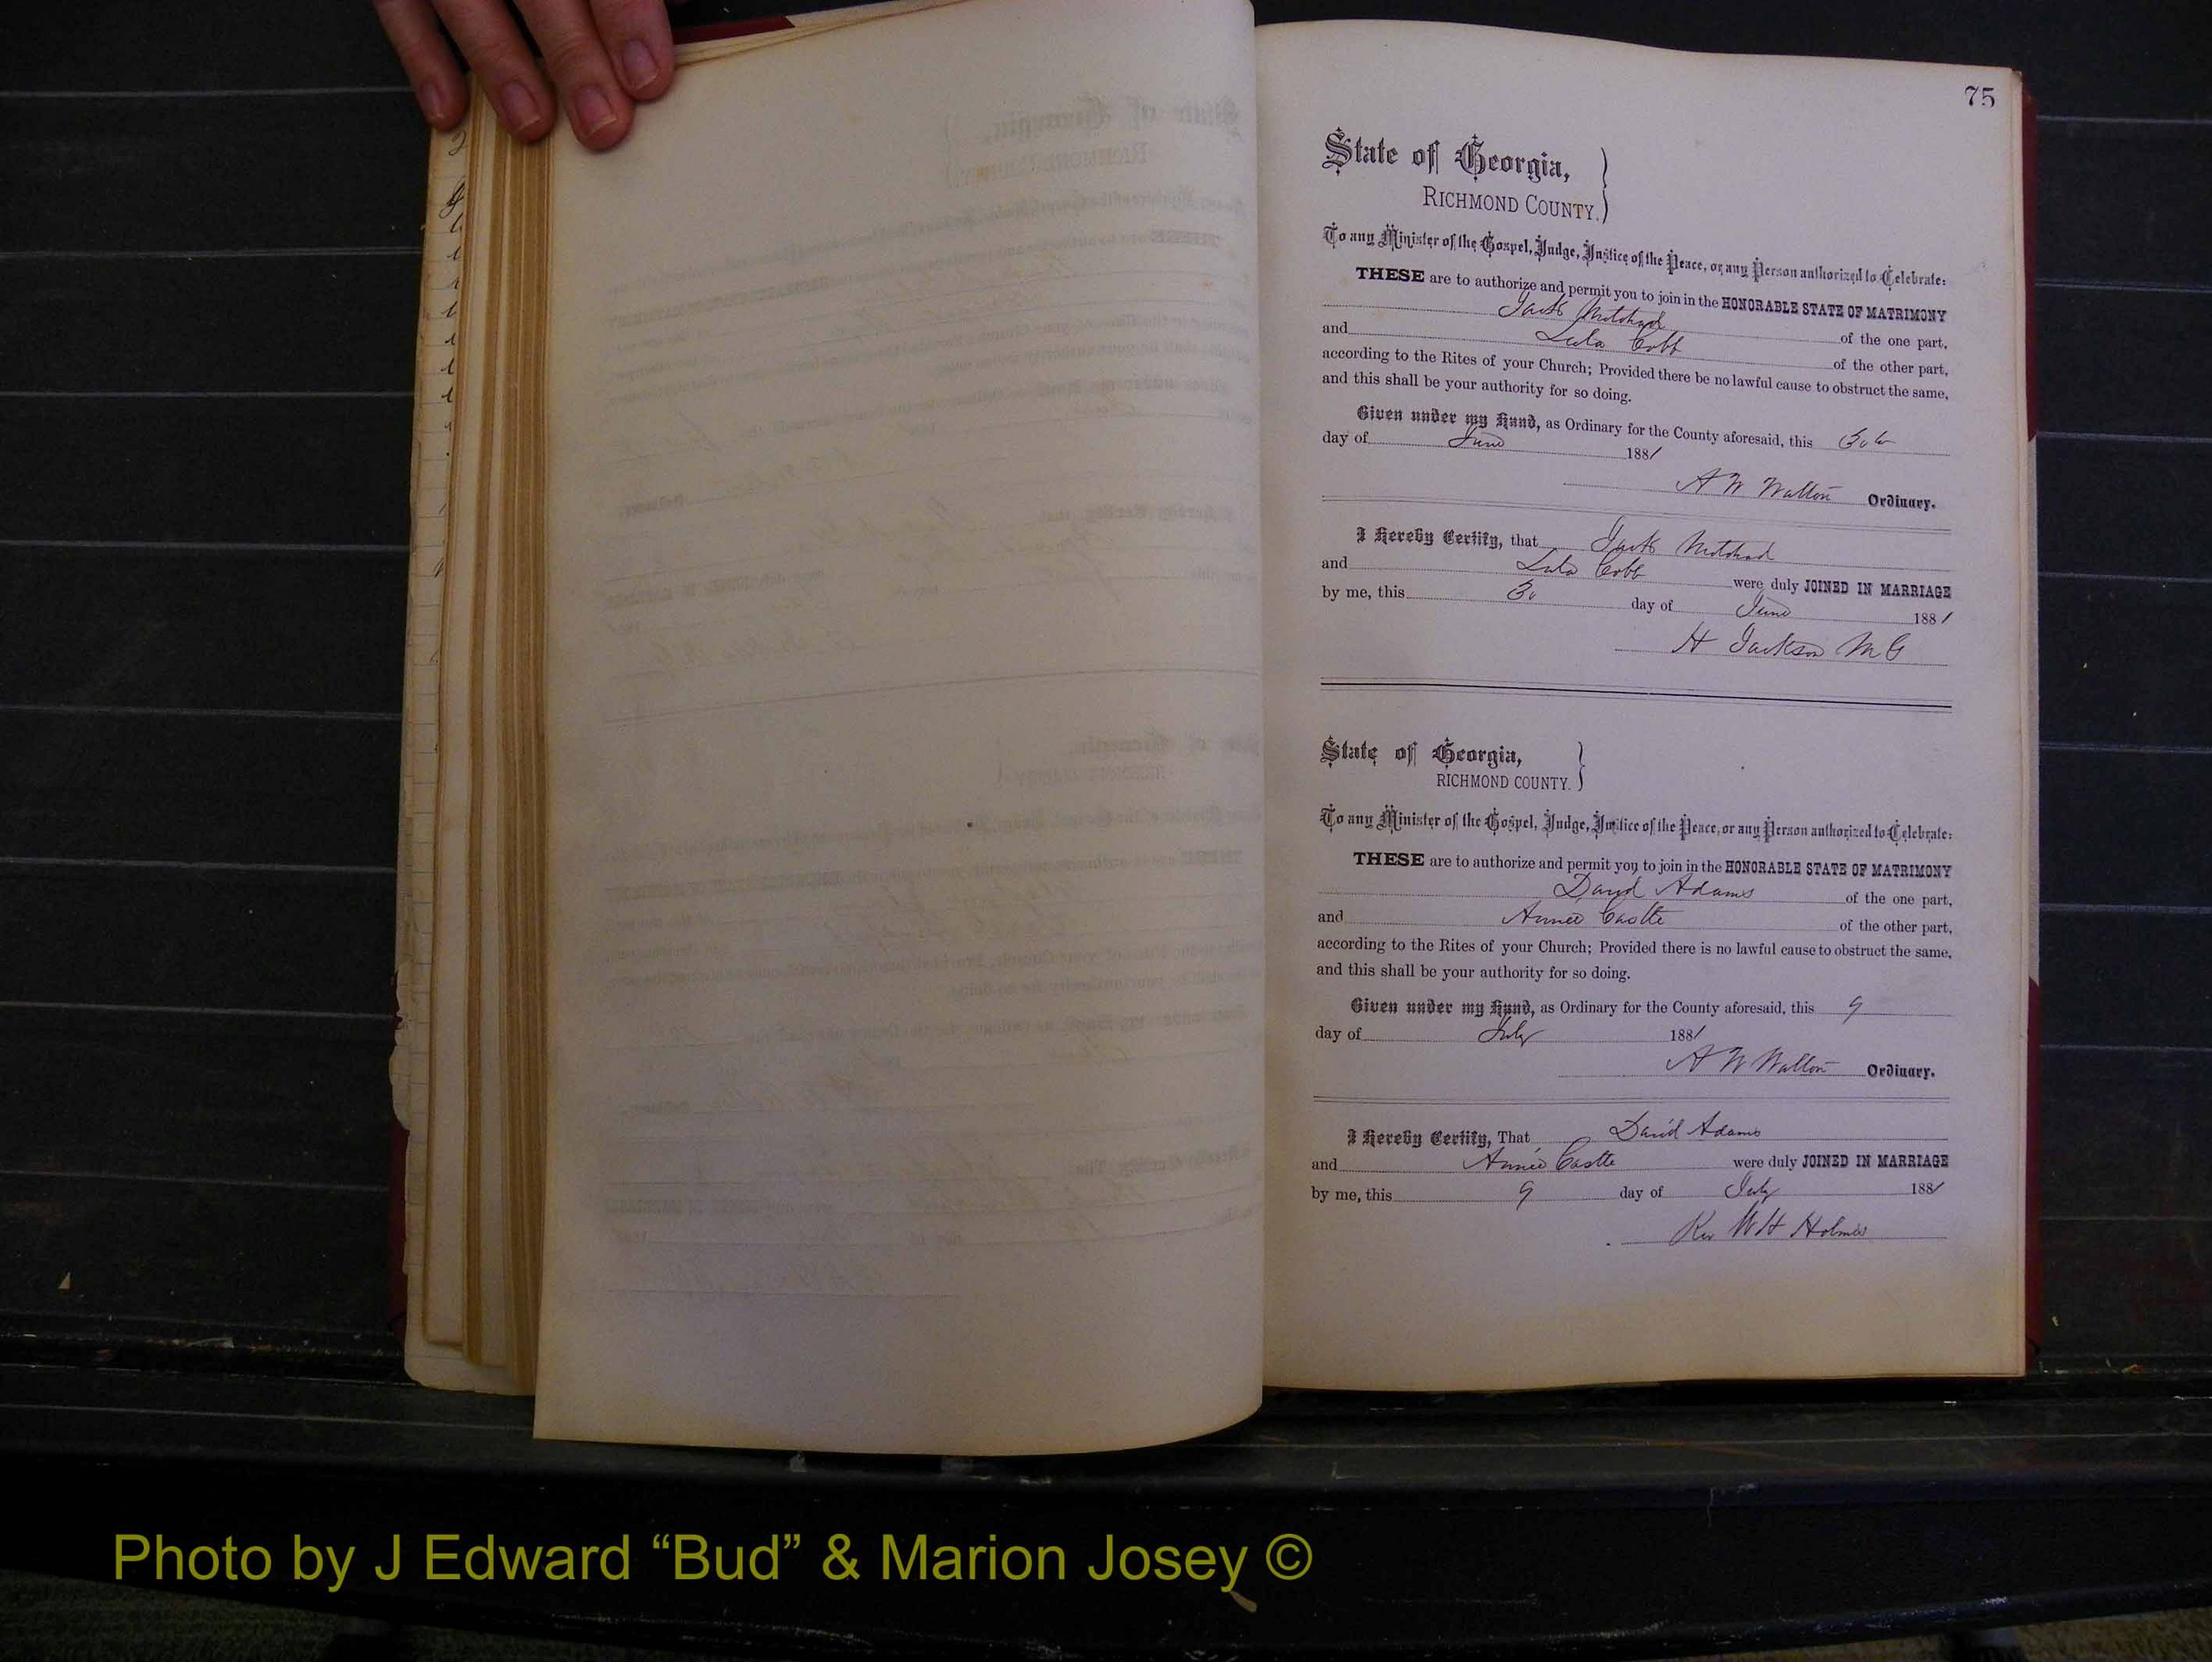 75
State of Georgia,
RICHMOND COUNTY.
To any Minister of the Gospel, Judge, Justice of the Peace, or any Person authorized to Celebrate:
THESE are to authorize and permit you to join in the HONORABLE STATE OF MATRIMONY
Jack of the one part,
and Lula Cobb of the other part,
according to the Rites of your Church; Provided there be no lawful cause to obstruct the same,
and this shall be your authority for so doing.
Given under my Hand, as Ordinary for the County aforesaid, this 30
day of June 1881
A W Walton Ordinary.
I Hereby Certify, that Jack
and Lula Cobb were duly JOINED IN MARRIAGE
by me, this 30 day of June 1881
H Jackson M G
State of Georgia,
RICHMOND COUNTY.
To any Minister of the Gospel, Judge, Justice of the Peace, or any Person authorized to Celebrate:
THESE are to authorize and permit you to join in the HONORABLE STATE OF MATRIMONY
David Adams of the one part,
and Annie Castle of the other part,
according to the Rites of your Church; Provided there is no lawful cause to obstruct the same,
and this shall be your authority for so doing.
Given under my Hand, as Ordinary for the County aforesaid, this 9
day of July 1881
A W Walton Ordinary.
I Hereby Certify, That David Adams
and Annie Castle were duly JOINED IN MARRIAGE
by me, this 9 day of July 1881
Rev W H Holmes
Photo by J Edward “Bud” & Marion Josey ©